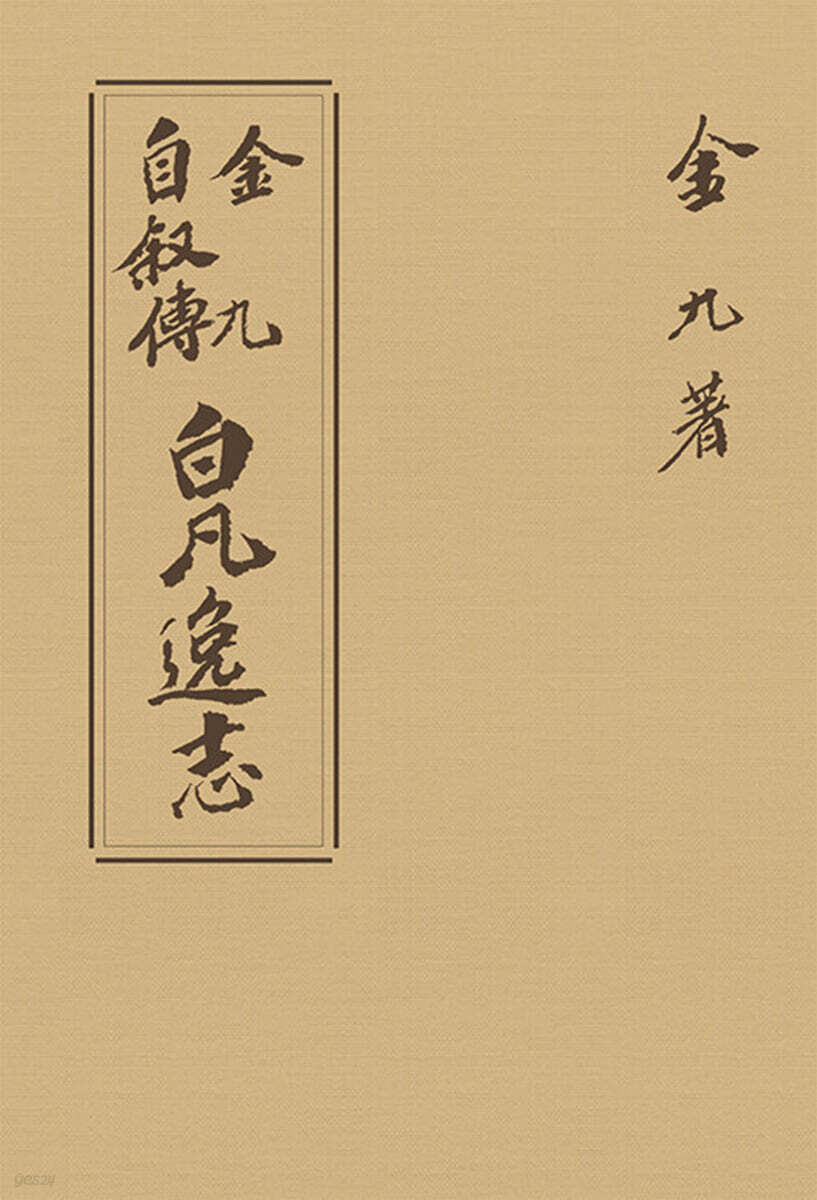 金九著
金九
自叙傳
白凡逸志
yes24